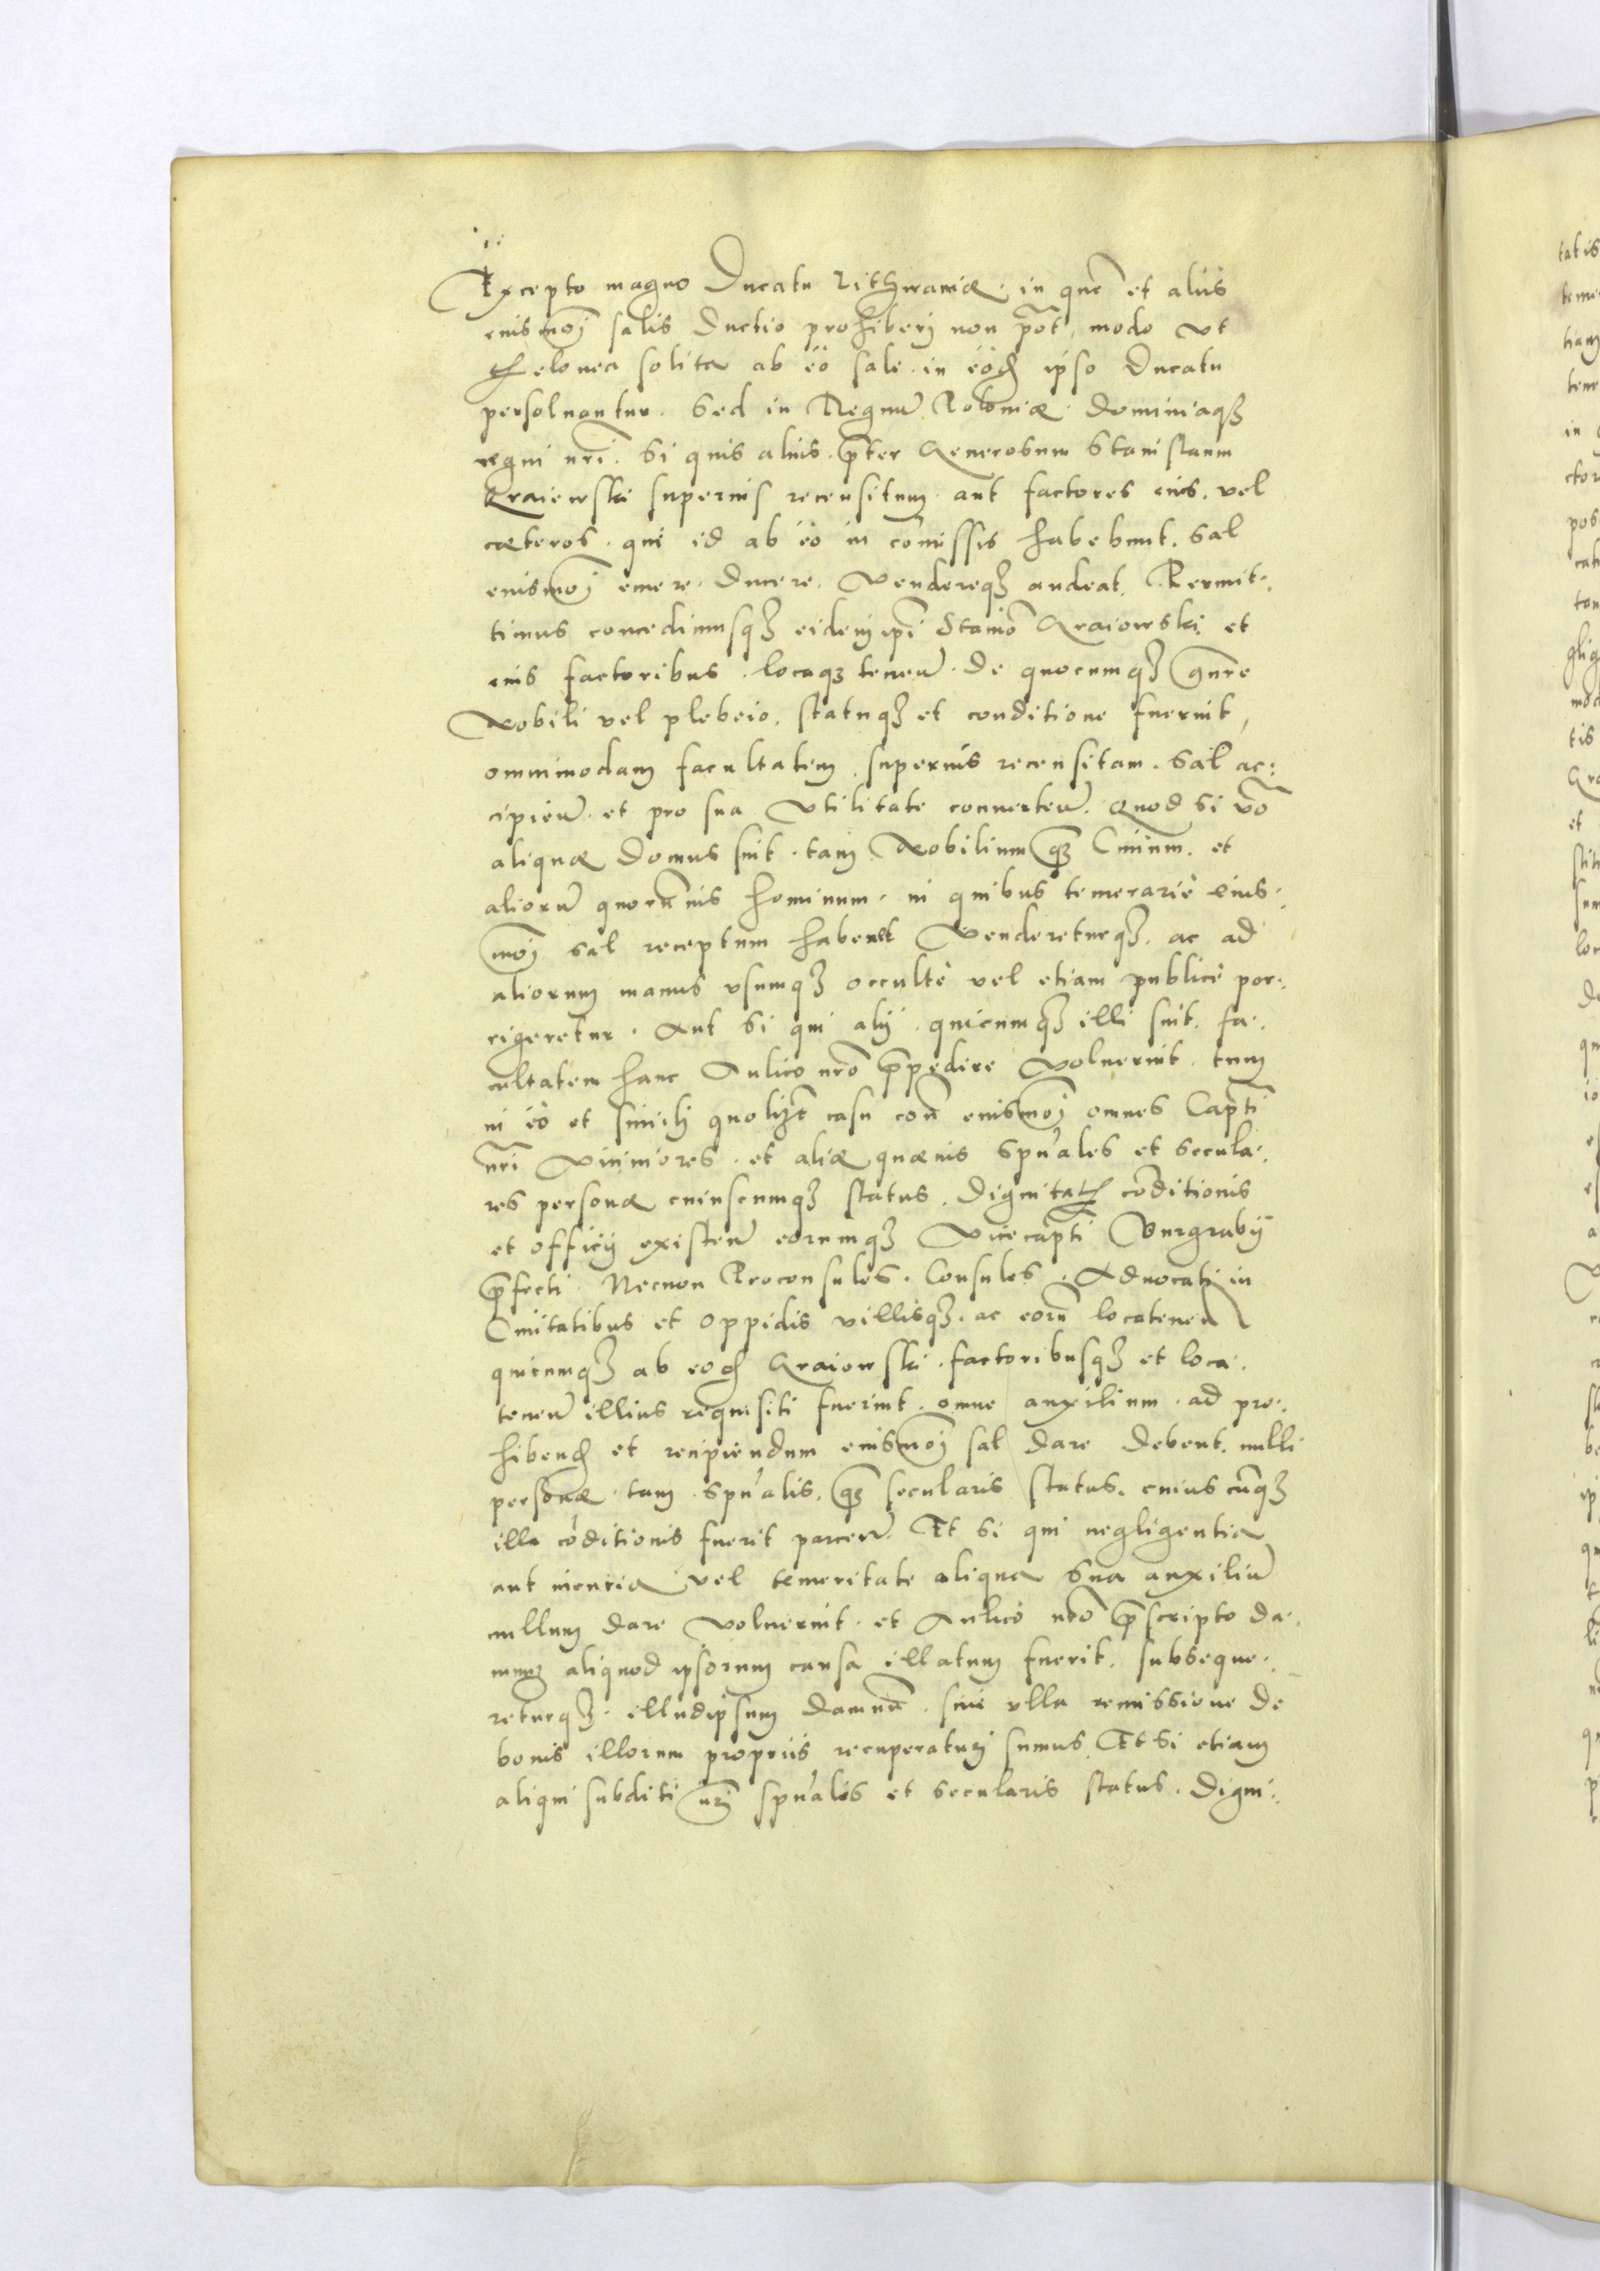 Excepto magno Ducatu Lithwaniæ. in quē et aliis
euismōi salis ductio prohiberi non põt, modo vt
thelonea solita ab eo sale. in eodē ipso Ducatu
persoluantur. Sed in Regnū Poloniæ. dominiaqʒ
regni nr̃i. Si quis alius. p̃ter Generosum Stanislaum
Graiewski superius recensitum aut factores eius. vel
cæteros. qui id ab eo in comissis habebunt. Sal
euismōi emere. ducere. Vendereqʒ audeat. Permit⸗
timus concedimusqʒ eidem ip̃i Stanō Graiowski et
eius factoribus. locaqʒ teneñ. de quocumqʒ gñre
Nobili vel plebeio. statuqʒ et conditione fuerint,
omnimodam facultatem superius recensitam. Sal ac⸗
cipieñ. et pro sua Vtilitate conuerteñ. Quod si vō
aliquæ Domus sint. tam Nobilium qʒ Ciuium. et
aliorū quorūuis hominum. in quibus temerarie eius⸗
mōi sal receptum habent Vendereturqʒ. ac ad
aliorum manus vsumqʒ occulte vel etiam publice por⸗
rigeretur. Aut si qui alij. quicumqʒ illi sint. fa⸗
cultatem hanc Aulico nrō p̃pedire Voluerint. tum
in eo et simili quolibt casu coñ euismōi omnes Capti
nr̃i Viciniores. et aliæ quæuis spũales et secula⸗
res personæ cuiuscumqʒ status. dignitatis conditionis
et officij existeñ eorumqʒ Vicecapti Burgrabij
p̃fecti. Necnon Proconsules. Consules. Aduocati in
Ciuitatibus et oppidis villisqʒ. ac eorū locateneñ
quicumqʒ ab eodē Graiowski. factoribusqʒ et loca⸗
teneñ illius requisiti fuerint. omne auxilium. ad pro⸗
hibendū et recipiendum euismōi sal dare debent. nulli
personæ. tam spũalis. qʒ secularis status. cuius cūqʒ
illa cōditionis fuerit parceñ. Et si qui negligentia
aut incuria vel temeritate aliqua sua auxiliū
nullum dare Voluerint. et Aulico nrō p̃scripto da⸗
mnum aliquod ipsorum causa illatum fuerit. subseque⸗
returqʒ. illudipsum damnū. sine vlla remissione de
bonis illorum propriis recuperaturi sumus. Et si etiam
aliqui subditi nr̃i spũalis et secularis status. digni⸗